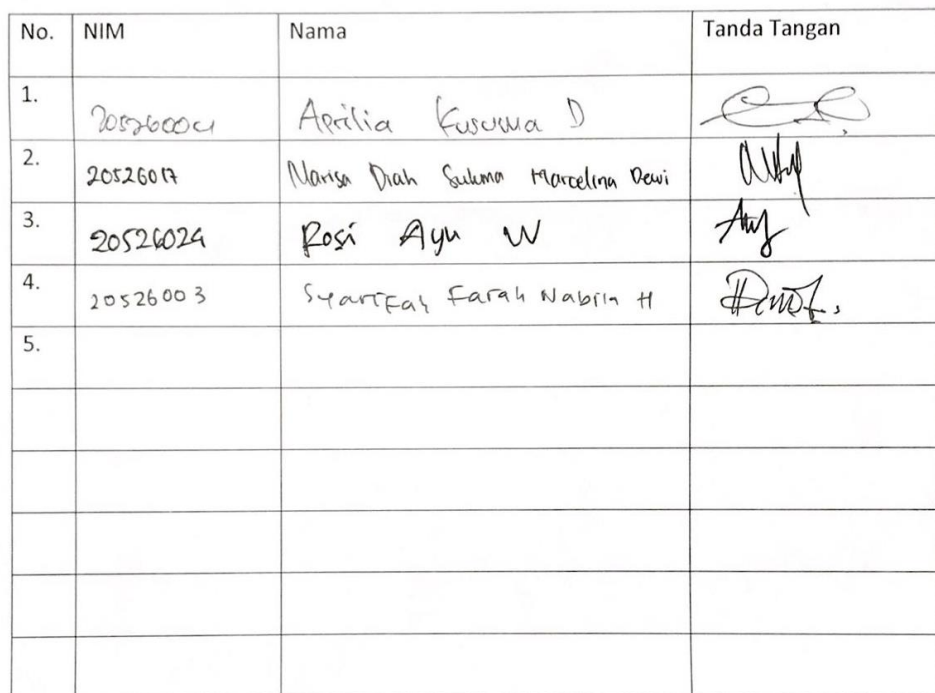 No. NIM Nama Tanda Tangan
1. 20526004 Aprilia Kusuma D
2. 20526017 Narisa Diah Sukma Marcelina Dewi
3. 20526024 Rosi Ayu W
4. 20526003 Syarifah Farah Nabila H
5.